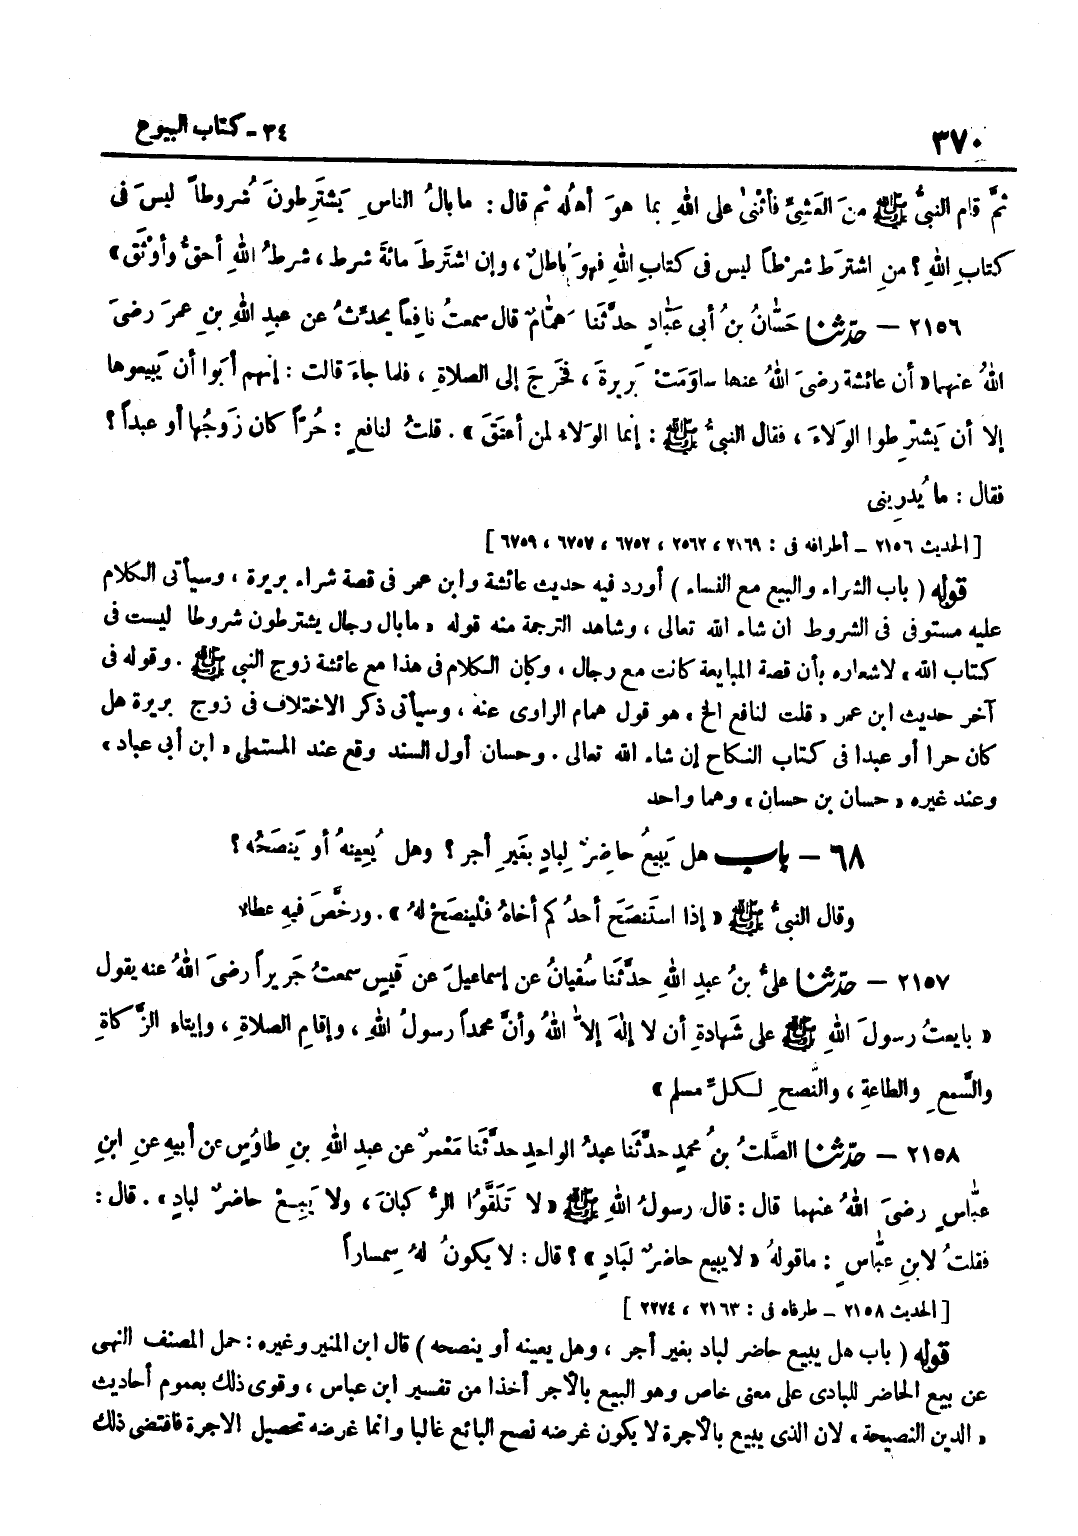 ٣٧٠
٣٤ - كتاب البيوع
ثمَّ قام النبىُّ ﷺ منَ العَشِىِّ فأثْنىٰ على اللهِ بما هوَ أهلُه ثم قال : مابالُ الناسِ يَشترِطونَ شُروطاً ليسَ فى
كتابِ اللهِ ؟ منِ اشترَط شرْطاً ليس فى كتابِ اللهِ فهوَ باطلٌ ، وإن اشتَرطَ مائةَ شرط ، شرطُ اللهِ أحقُّ وأوْثَق »
٢١٥٦ — حدّثنا حَسّانُ بنُ أبى عَبّادٍ حدَّثَنا هَمّامٌ قال سمعتُ نافِعاً يحدِّثُ عن عبدِ اللهِ بنِ عمرَ رضىَ
اللهُ عنهما « أن عائشةَ رضىَ اللهُ عنها ساوَمَتْ بَرِيرةَ ، فخرَجَ إلى الصلاةِ ، فلما جاءَ قالت : إنهم أبَوا أن يَبيعوها
إلا أن يَشترِطوا الوَلاءَ ، فقال النبىُّ ﷺ : إنما الوَلاء لمن أعتَقَ » . قلتُ لنافعٍ : حُرّاً كان زَوجُها أو عبداً ؟
فقال : ما يُدرِينى
[ الحديث ٢١٥٦ ـ أطرافه فى : ٢١٦٩ ، ٢٥٦٢ ، ٦٧٥٢ ، ٦٧٥٧ ، ٦٧٥٩ ]
قوله ( باب الشراء والبيع مع النساء ) أورد فيه حديث عائشة وابن عمر فى قصة شراء بريرة ، وسيأتى الكلام
عليه مستوفى فى الشروط ان شاء الله تعالى ، وشاهد الترجمة منه قوله « مابال رجال يشترطون شروطا ليست فى
كتاب الله ، لاشعاره بأن قصة المبايعة كانت مع رجال ، وكان الكلام فى هذا مع عائشة زوج النبى ﷺ . وقوله فى
آخر حديث ابن عمر « قلت لنافع الخ ، هو قول همام الراوى عنه ، وسيأتى ذكر الاختلاف فى زوج بريرة هل
كان حرا أو عبدا فى كتاب النكاح إن شاء الله تعالى . وحسان أول السند وقع عند المستملى « ابن أبى عباد ،
وعند غيره « حسان بن حسان ، وهما واحد
٦٨ — باب هل يَبيعُ حاضِرٌ لِبادٍ بغَيرِ أجر ؟ وهل يُعِينهُ أو يَنصَحُه ؟
وقال النبىُّ ﷺ « إذا استَنصَحَ أحدُكم أخاهُ فلْينصَحْ لهُ » . ورخَّصَ فيهِ عطاء
٢١٥٧ — حدّثنا علىُّ بنُ عبدِ اللهِ حدَّثَنا سُفيانُ عن إسماعيلَ عن قَيسٍ سمعتُ جَريراً رضىَ اللهُ عنه يقول
« بايعتُ رسولَ اللهِ ﷺ على شَهادةِ أن لا إلٰهَ إلاّ اللهُ وأنَّ محمداً رسولُ اللهِ ، وإقامِ الصلاةِ ، وإيتاءِ الزَّكاةِ
والسَّمعِ والطاعةِ ، والنُّصحِ لكلِّ مسلم »
٢١٥٨ — حدّثنا الصَّلتُ بنُ محمدٍ حدَّثَنا عبدُ الواحدِ حدَّثَنا مَعْمرٌ عن عبدِ اللهِ بنِ طاوُسٍ عن أبيهِ عنِ ابنِ
عبّاسٍ رضىَ اللهُ عنهما قال : قال رسولُ اللهِ ﷺ « لا تَلَقَّوُا الرُّكبانَ ، ولا يَبِيعْ حاضرٌ لبادٍ » . قال :
فقلتُ لابنِ عبّاسٍ : ماقولهُ « لايبيع حاضرٌ لبَادٍ » ؟ قال : لا يكونُ لهُ سِمساراً
[ الحديث ٢١٥٨ ـ طرفاه فى : ٢١٦٣ ، ٢٢٧٤ ]
قوله ( باب هل يبيع حاضر لباد بغير أجر ، وهل يعينه أو ينصحه ) قال ابن المنير وغيره : حمل المصنف النهى
عن بيع الحاضر للبادى على معنى خاص وهو البيع بالأجر أخذا من تفسير ابن عباس ، وقوى ذلك بعموم أحاديث
« الدين النصيحة ، لان الذى يبيع بالأجرة لا يكون غرضه نصح البائع غالبا وانما غرضه تحصيل الاجرة فاقتضى ذلك